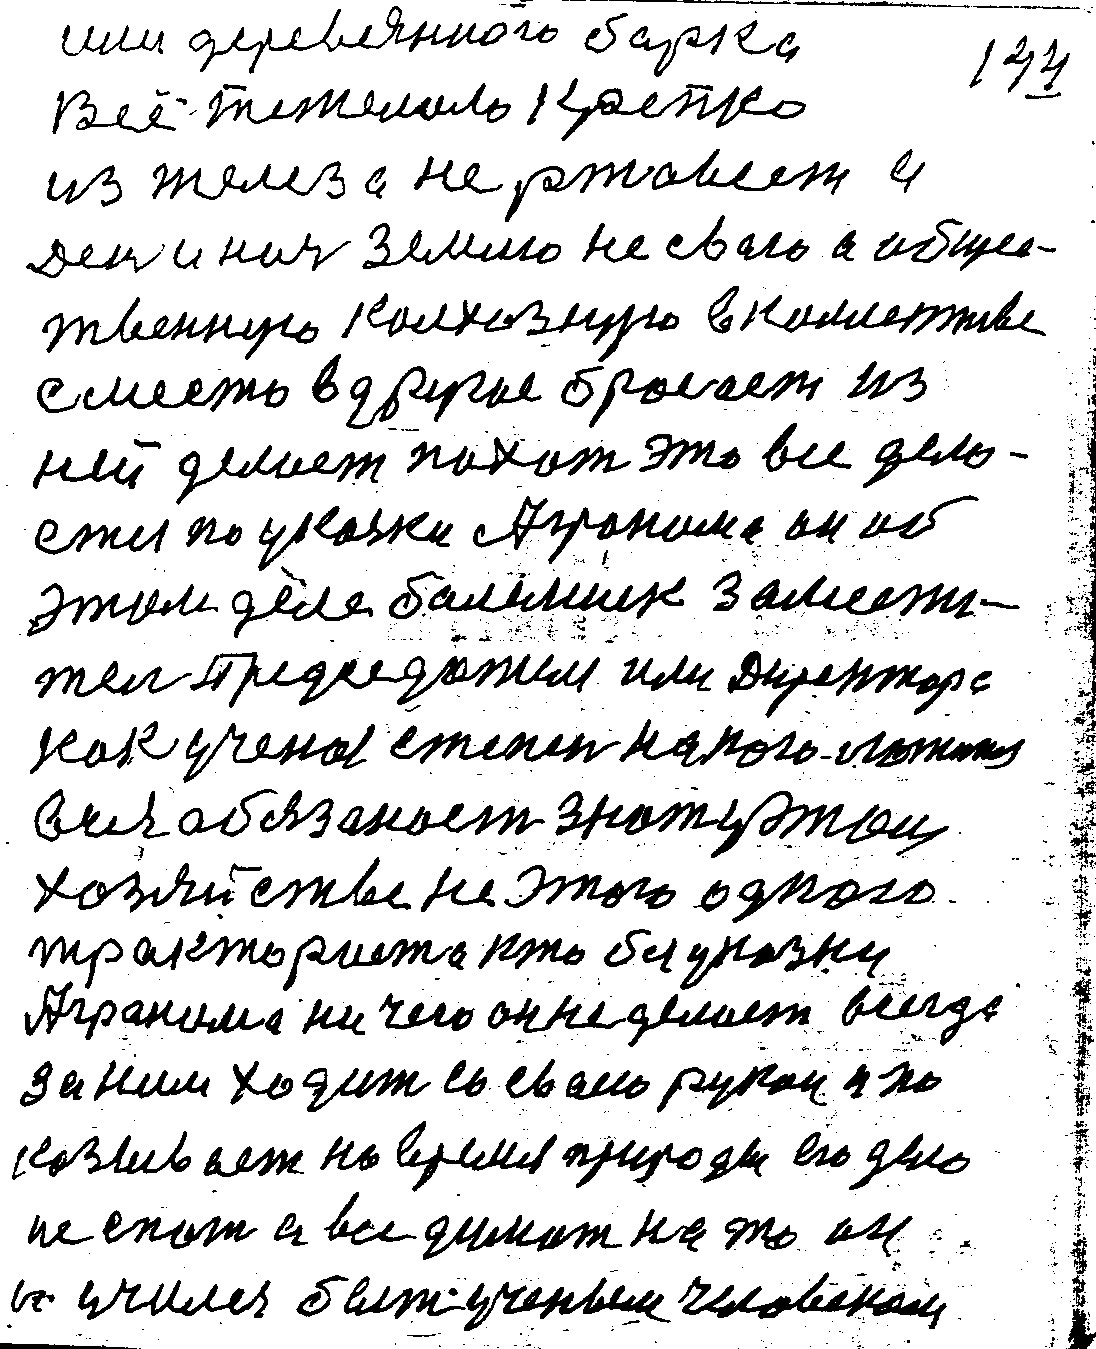 или деревянного барка
144
Всё тежелоль крепко
из железа не ржовеет а
Ден и ноч Землю не своlо а общес-
твенную колхозную в коллективе
сместо в другое бросает из
ней делоет похот это все дело-
ется по указки Агронома он об
этом деле балельшик замести-
тел Председотеля или Директора
как ученоя степен на ного ложится
вся обязаност знот у этом
хозяйстве не этого одного
тракториста кто без указки
Агранома ни чего он не делоет всегда
за ним ходит со своlо рукои и по
козывоет на время природы его дело
не спот а все думот на то он
и училея быт ученым человеком